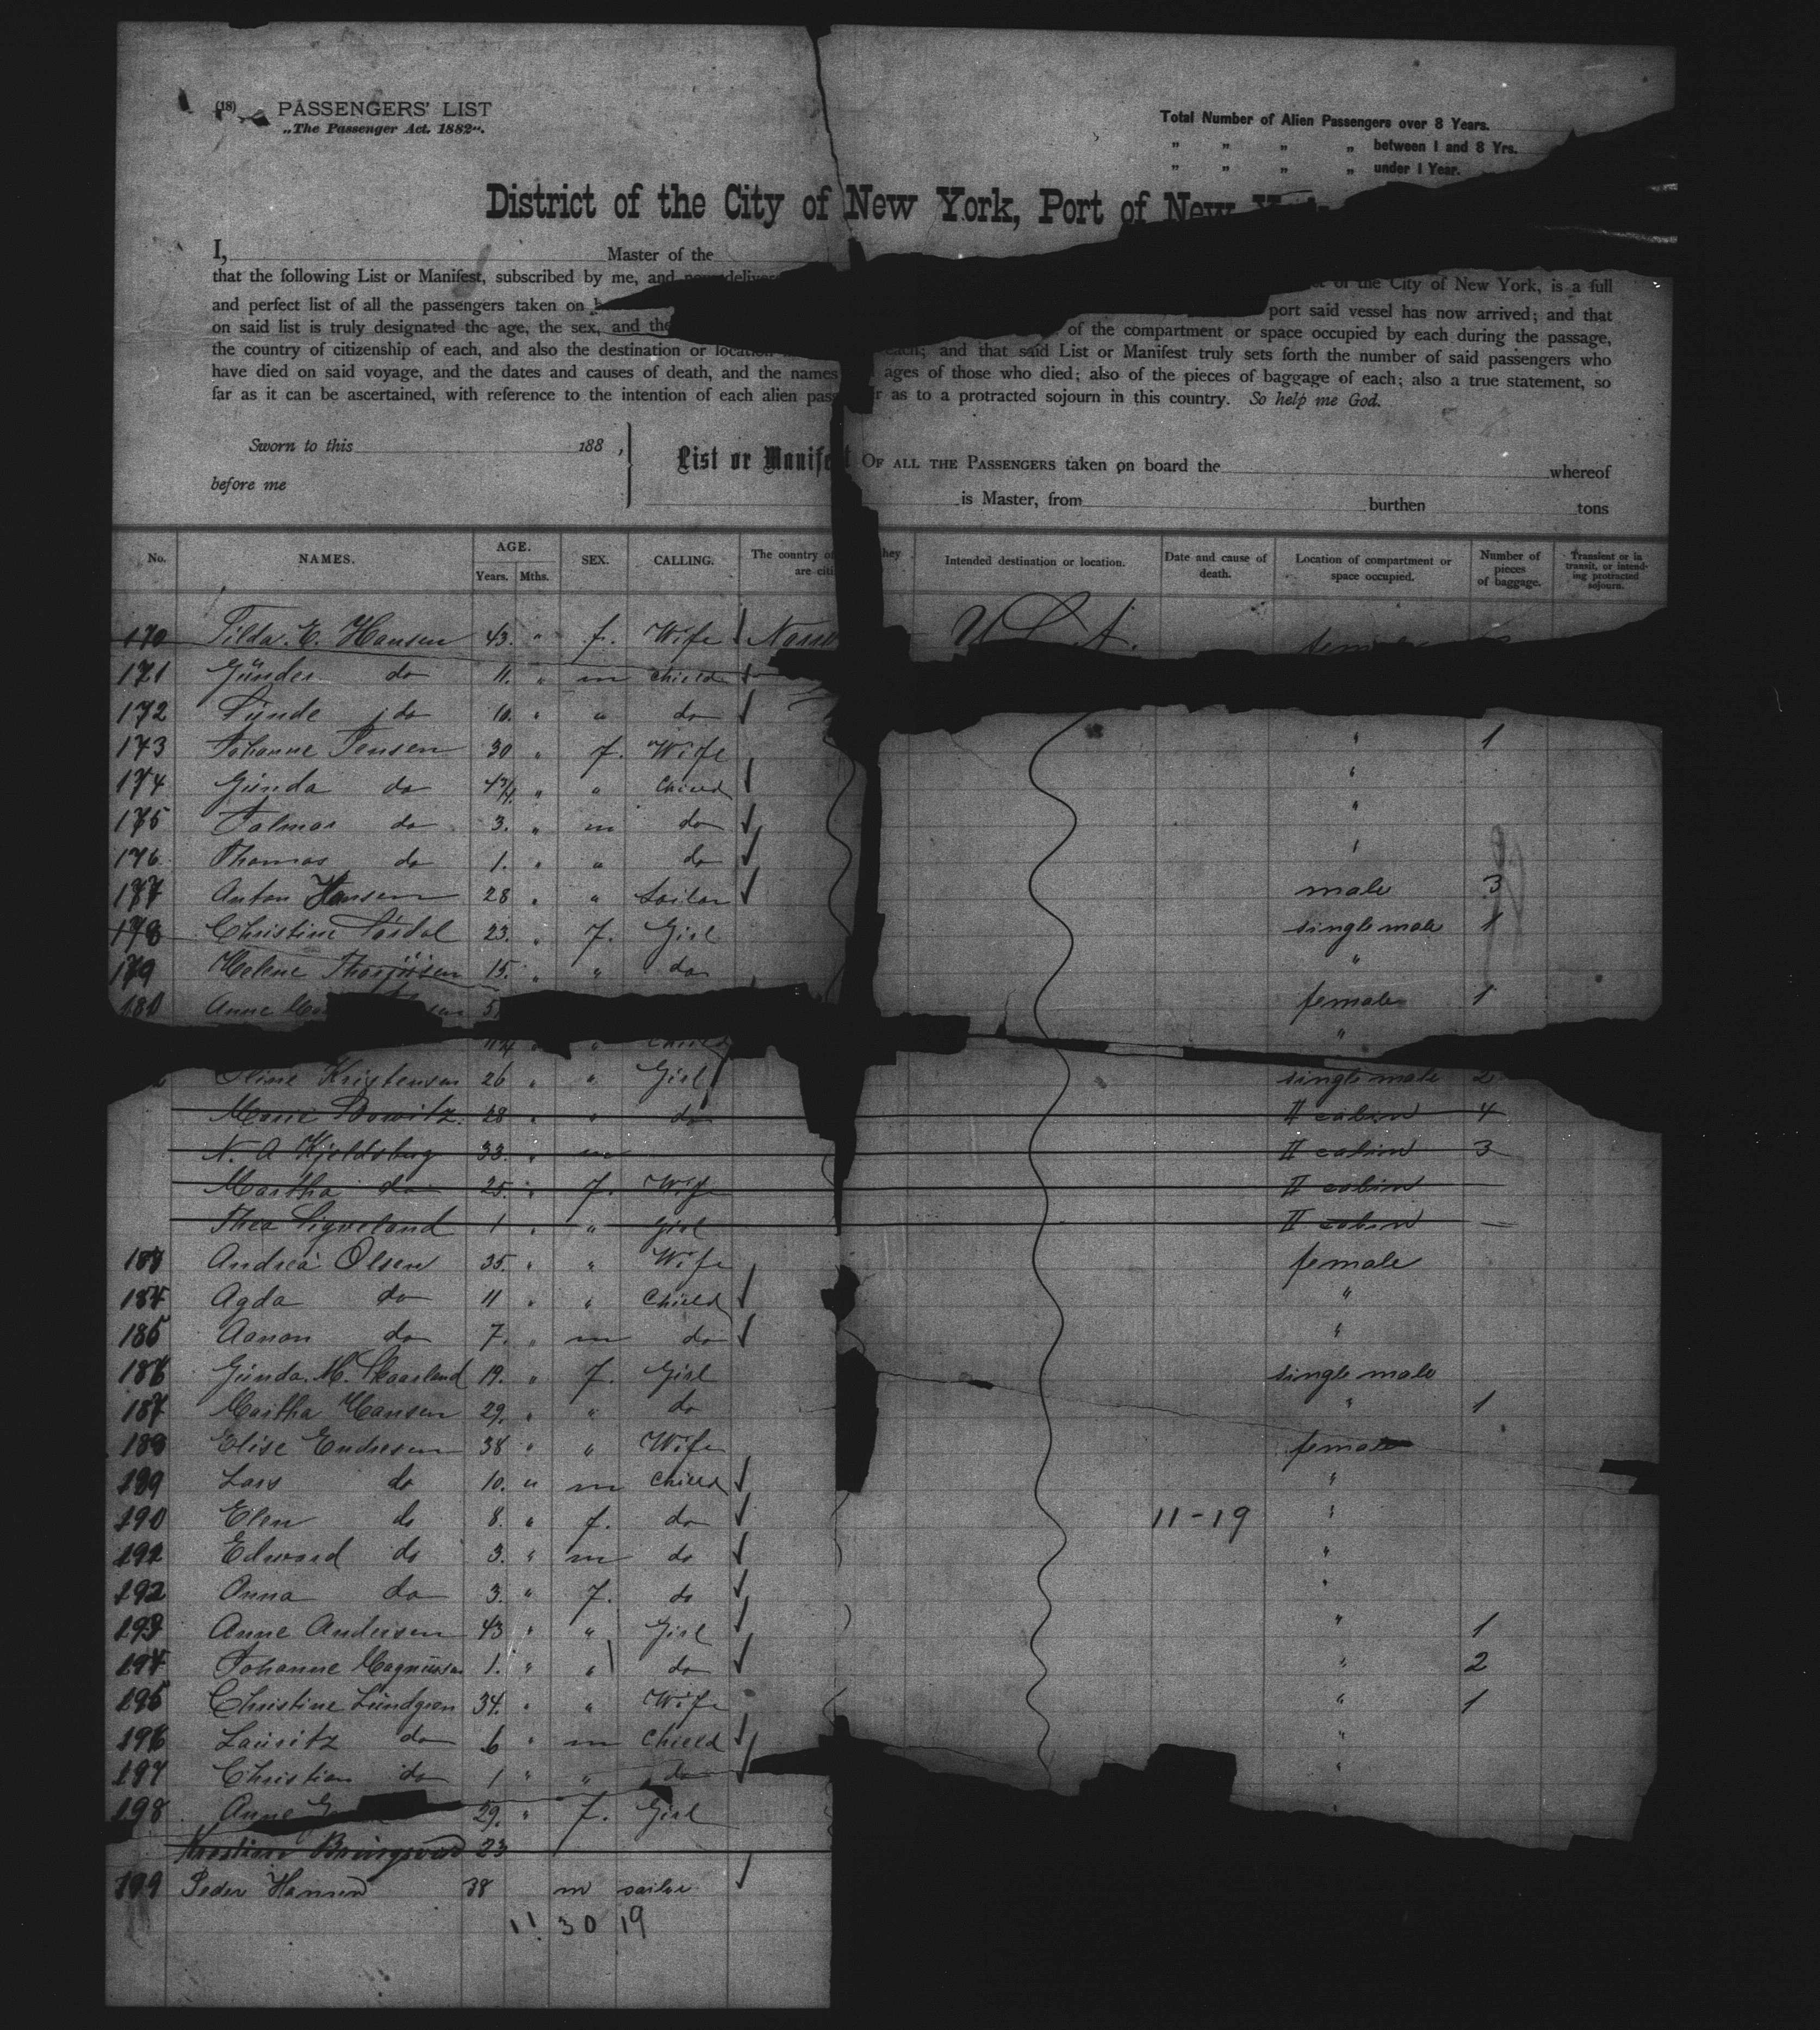 (18) PASSENGERS' LIST
„The Passenger Act. 1882“.
Total Number of Alien Passengers over 8 Years.
„ „ „ „ between 1 and 8 Yrs.
„ „ „ „ under 1 Year.
District of the City of New York, Port of New
I, Master of the
that the following List or Manifest, subscribed by me, and now deliver of the City of New York, is a full
and perfect list of all the passengers taken on port said vessel has now arrived; and that
on said list is truly designated the age, the sex, and the of the compartment or space occupied by each during the passage,
the country of citizenship of each, and also the destination or location each; and that said List or Manifest truly sets forth the number of said passengers who
have died on said voyage, and the dates and causes of death, and the names ages of those who died; also of the pieces of baggage of each; also a true statement, so
far as it can be ascertained, with reference to the intention of each alien pass r as to a protracted sojourn in this country. So help me God.
Sworn to this 188 ,
before me
List or Manifest OF ALL THE PASSENGERS taken on board the whereof
is Master, from burthen tons
No. NAMES. AGE. Years. Mths. SEX. CALLING. The country of hey are citi Intended destination or location. Date and cause of death. Location of compartment or space occupied. Number of pieces of baggage. Transient or in transit, or intending protracted sojourn.
170 Tilda. E. Hansen 43. " f. Wife U.S.A.
171 Gunder do 11. " m Chield
172 do 10. " " do
173 Johanne Jensen 30 " f. Wife " 1
174 Gunda do " " Chield "
175 do 3. " m do "
176 Thomas do 1. " " do "
177 Anton Hansen 28 " " Sailor male 3
178 Christine 23. " f. Girl single male 1
179 Helene 15. " " do "
180 Anne female 1
Kristensen 26 " " Girl single male 2
Marie 28 " " do II cabin 4
N. A Kjeldsberg 33. " m II cabin 3
Martha do 25. " f. Wife II cabin
Thea Sigveland 1 " " Girl II cabin
183 Andrea Olsen 35. " " Wife female
184 Agda do 11 " " Chield "
185 Aanon do 7. " m do "
186 Gunda. M. Skaarland 19. " f. Girl single male
187 Martha Hansen 29. " " do " 1
188 Elise Endresen 38 " " Wife female
189 Lars do 10. " m Chield "
190 Elen do 8. " f. do 11-19 "
191 Edward do 3. " m do "
192 Anna do 3. " f. do "
193 Anne Andersen 43 " " Girl " 1
194 Johanne Magnussen 1. " " do " 2
195 Christine Lundgren 34. " " Wife " 1
196 Lauritz do 6 " m Chield "
197 Christian do 1 " " do "
198 Anne 29. " f. Girl "
Bringsvard 23
199 Peder Hansen 38 m sailor
11 30 19